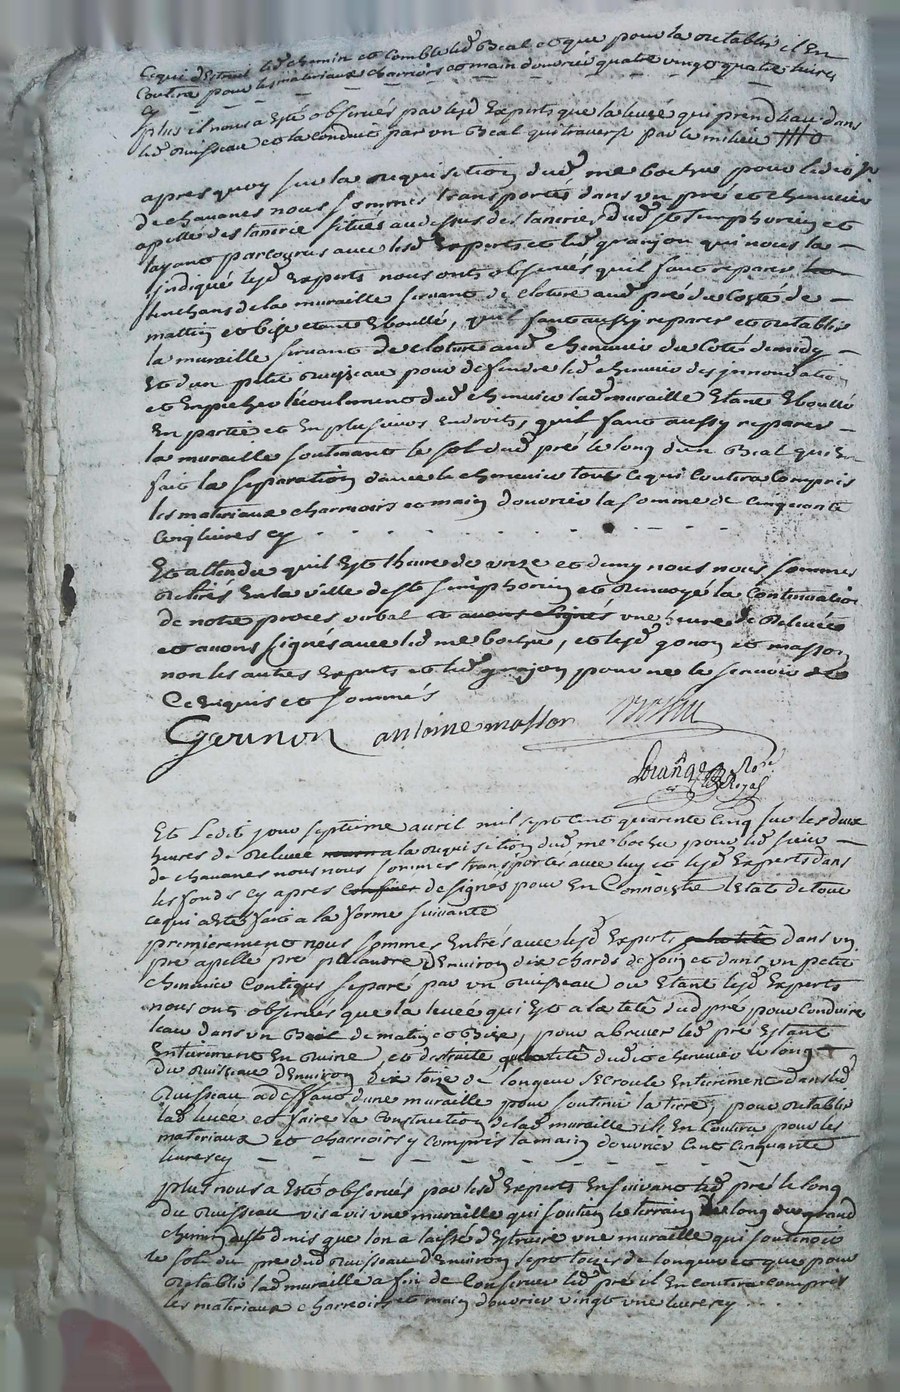 cequi detruit led chemin et comble led Beal et que pour la retablir il En
Coutera pour les materiaux charriois et main douvrier quatre vingt quatre livres
cy
plus il nous a Esté observés par lesd Experts que la levée qui prend Leau dans
led Ruisseau et la conduit par un Beal qui traverse par le milieu
apres quoy sur la requisition dud me bochu pour ledit Sr
de chavanes nous sommes transportés dans un pré et chenevier
apellé des tanerie situés audessus des taneries dud st Simphorien et
layant parcourus avec lesd Experts et led granjon qui nous la
indiqué lesd Experts nous ont observés quil faut reparer
de la muraille servant de cloture aud pré du Costé de
mattin et bize etant Eboullé, quil faut aussy reparer et retablir
la muraille servant de cloture aud chenevier du Coté de midy
Et dun petit Ruisseau pour defendre led chenevier des innondation
et Empecher lécoulement dud chenevier lad muraille Etant Eboullé
En partie et En plusieurs Endroits, quil faut aussy reparer
la muraille soutenant le sol dud pré le long dun Beal qui En
fait la separation davec le chenevier tout cequi Coutera Compris
les materiaux charriois et main douvrier la somme de cinquante
cinq livres cy
Et attendu quil Est lheure de onze et demy nous nous sommes
Retirés En la ville de st simphorien et Renvoyé la Continuation
de notre procés verbal et avons signés une heure de Relevée
et avons signés avec led me bochu, et lesd gonon et masson
non les autres Experts et led grajon pour ne le scavoir de
Ce requis et sommés
antoine masson
Et Ledit jour septieme avril mil sept Cent quarente Cinq sur les deux
heures de Relevée a la requisition dud me bochu pour led sieur
de chavanes nous nous sommes transportés avec luy et lesd Experts dans
les fonds cy apres confiner designés pour En Connoistre lEtat de tout
cequi a Esté fait a la forme suivante
premierement nous sommes Entrés avec lesd Experts dans un
pré apellé pré dEnviron dix chards de foin et dans un petit
chenevier Contigus separé par un Ruisseau ou Etant lesd Experts
nous ont observés que la levée qui Est a la tete dud pré pour Conduire
leau dans un Beal de matin et Bize, pour abruver led pré Estant
Entierement En Ruine, et detruitte tete dudit chenevier le long
du Ruisseau dEnviron dix toise de longeur sEcroule Entierement dans led
Ruisseau a deffaut dune muraille pour soutenir la terre pour Retablir
lad levée et faire la Construction de lad muraille il En Coutera pour les
materiaux et charriois y compris la main douvrier Cent Cinquante
livres cy
plus nous a Esté observés par lesd Experts En suivant led pré le long
du Ruisseau vis a vis une muraille qui soutien le terrain le long du grand
chemin que lon a laissé dEtruire une muraille qui soutenoit
le sol du pré dud Ruisseau dEnviron sept toizes de longeur et que pour
Retablir lad muraille a fin de Conserver led pré il En coutera compris
les materiaux charriois et main douvrier vingt une livres cy